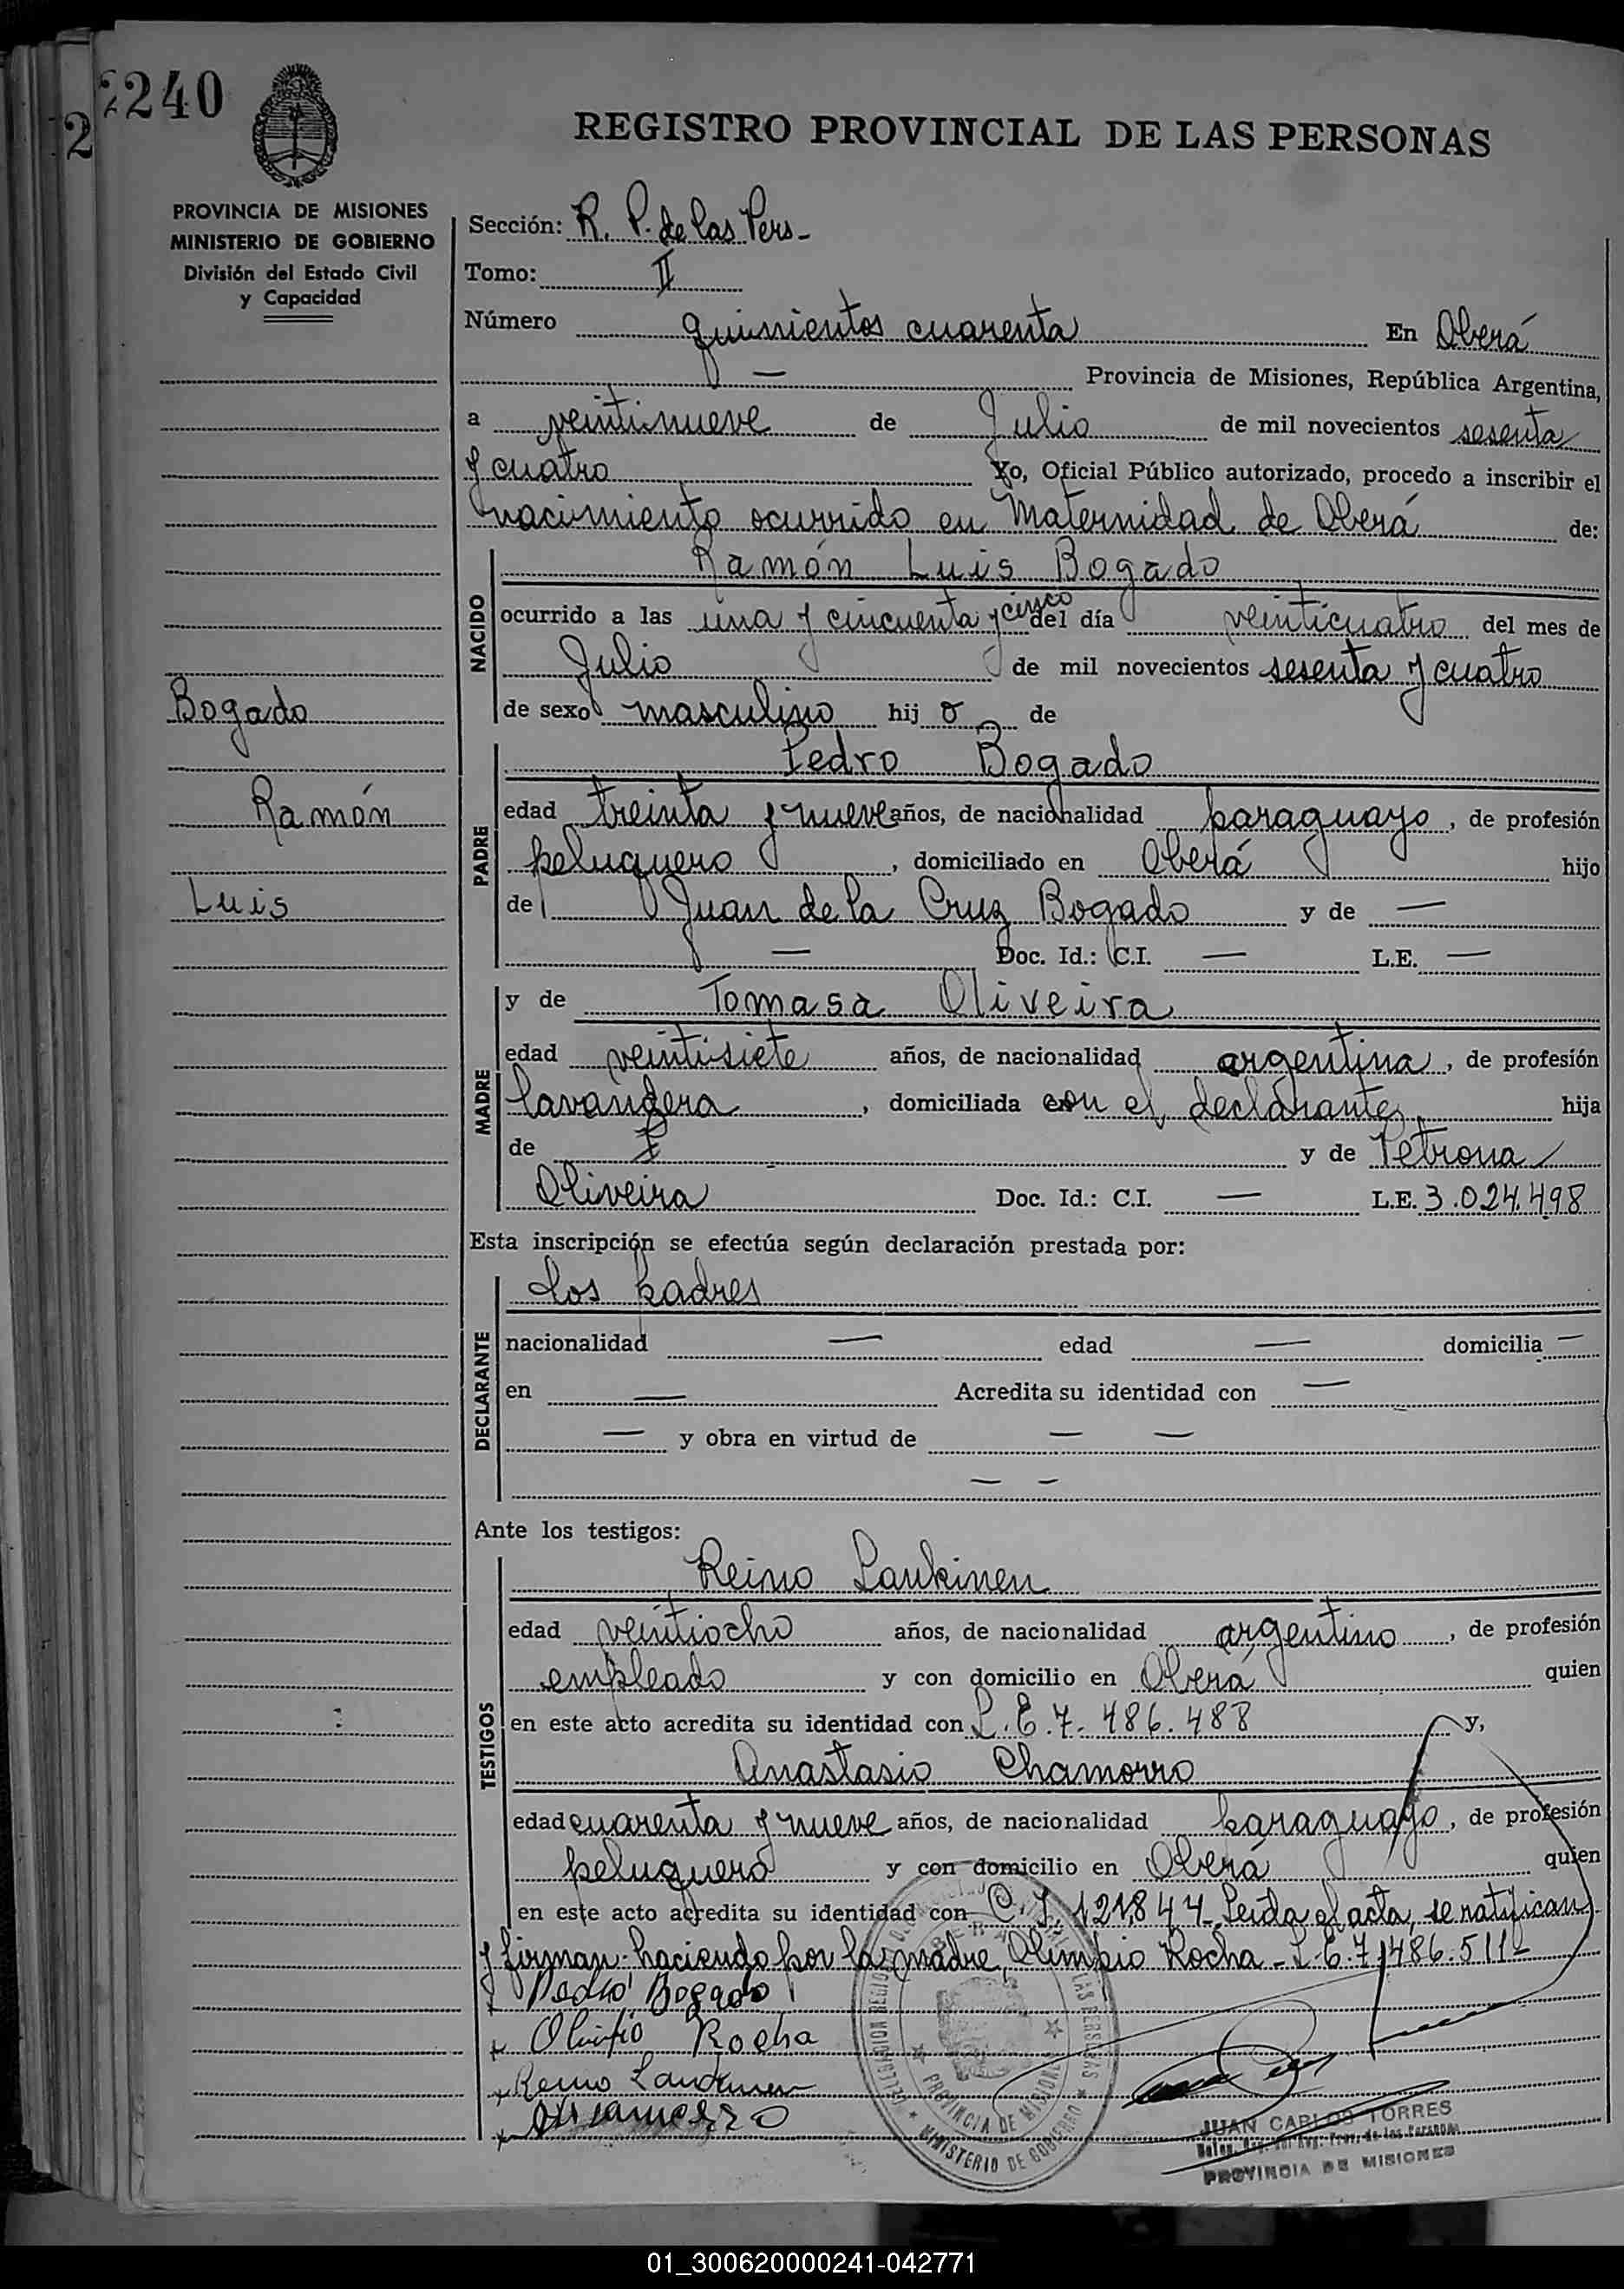 2240
2
REGISTRO PROVINCIAL DE LAS PERSONAS
PROVINCIA DE MISIONES
MINISTERIO DE GOBIERNO
División del Estado Civil
y Capacidad
Sección: R. P. de las Pers-
Tomo: II
Número quinientos cuarenta En Oberá
— Provincia de Misiones, República Argentina,
a veintinueve de Julio de mil novecientos sesenta
y cuatro Yo, Oficial Público autorizado, procedo a inscribir el
nacimiento ocurrido en Maternidad de Oberá de:
NACIDO
Ramón Luis Bogado
ocurrido a las una y cincuenta y cinco del día veinticuatro del mes de
Julio de mil novecientos sesenta y cuatro
de sexo masculino hij o de
Bogado
Ramón
Luis
PADRE
Pedro Bogado
edad treinta y nueve años, de nacionalidad paraguayo, de profesión
peluquero, domiciliado en Oberá hijo
de Juan de la Cruz Bogado y de —
— Doc. Id.: C.I. — L.E. —
MADRE
y de Tomasa Oliveira
edad veintisiete años, de nacionalidad argentina, de profesión
lavandera, domiciliada con el declarante, hija
de y de Petrona
Oliveira Doc. Id.: C.I. — L.E. 3.024.498
Esta inscripción se efectúa según declaración prestada por:
DECLARANTE
los padres
nacionalidad — edad — domicilia —
en — Acredita su identidad con —
— y obra en virtud de — —
— -
Ante los testigos:
TESTIGOS
Reino Laukinen
edad veintiocho años, de nacionalidad argentino, de profesión
empleado y con domicilio en Oberá quien
en este acto acredita su identidad con L.E. 7.486.488 y,
Anastasio Chamorro
edad cuarenta y nueve años, de nacionalidad paraguayo, de profesión
peluquero y con domicilio en Oberá quien
en este acto acredita su identidad con C.I. 121.844. Leida el acta, se ratifican
y firman: haciendo por la madre, Olimpio Rocha - L.E. 7.486.511-
Pedro Bogado
Olimpio Rocha
Reino Laukinen
PROVINCIA DE MISIONES
MINISTERIO DE GOBIERNO
JUAN CARLOS TORRES
PROVINCIA DE MISIONES
01_300620000241-042771